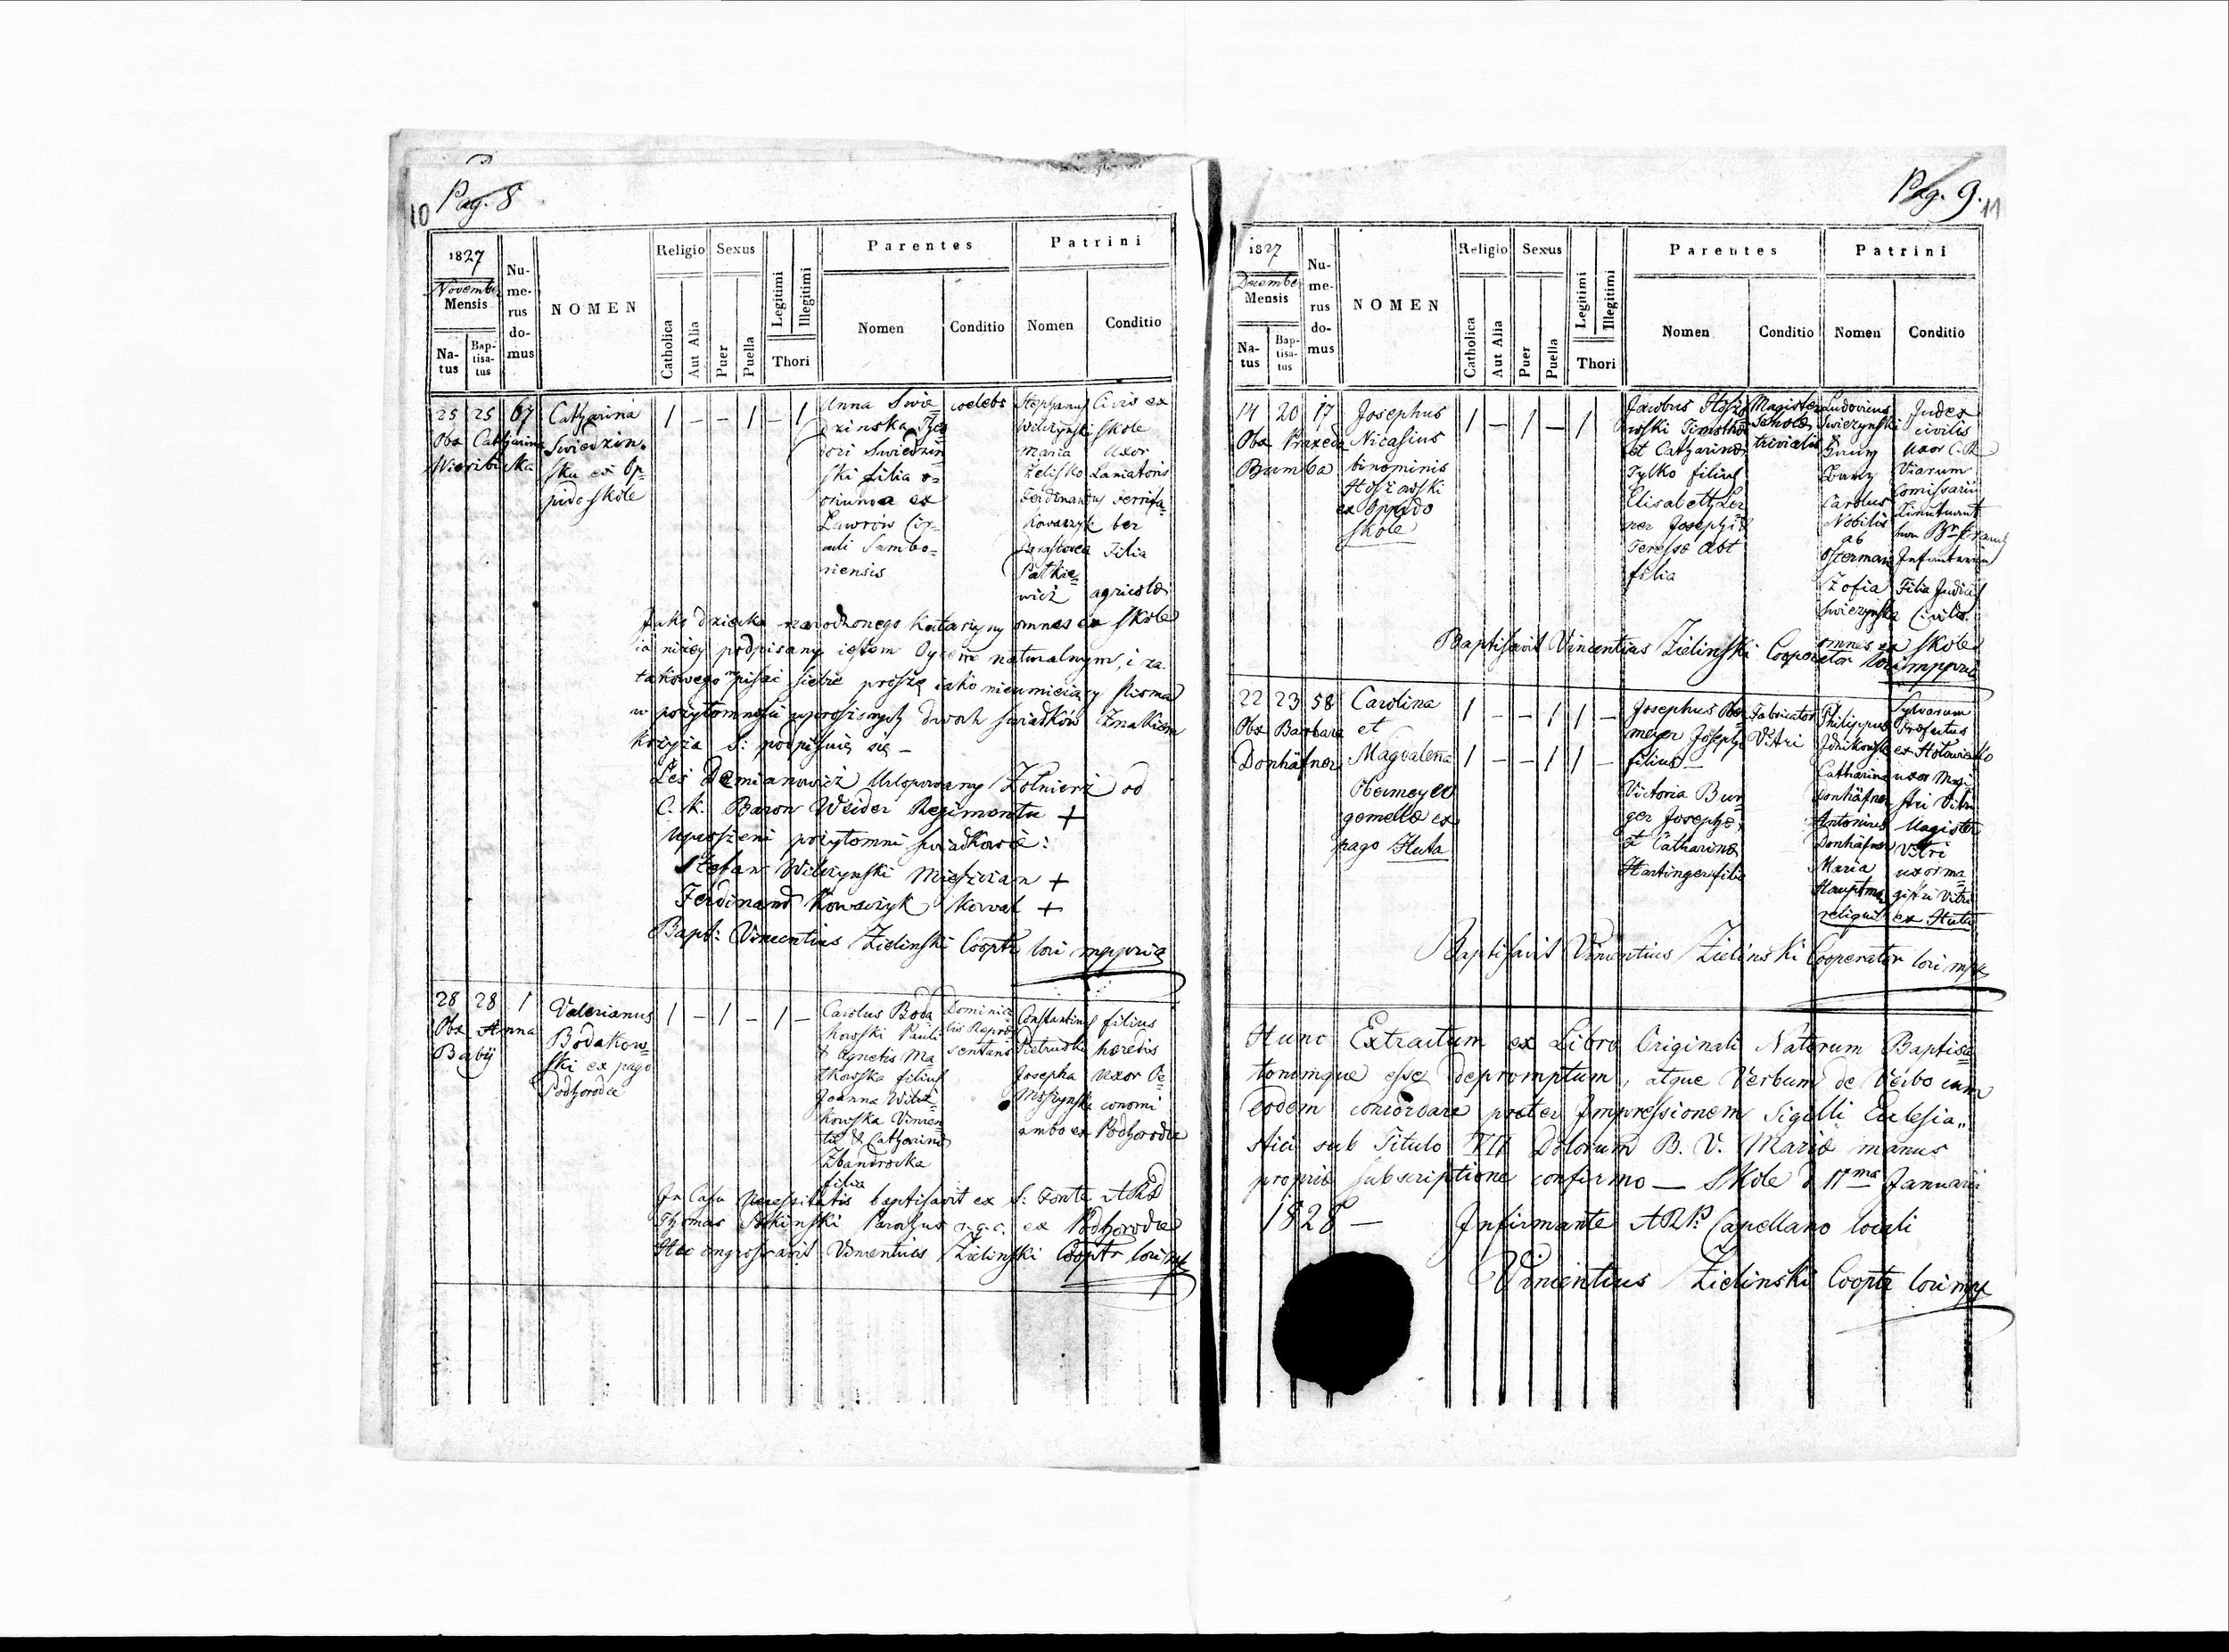 10 Pag. 8
1827
November
Mensis
Na-
tus
Bap-
tisa-
tus
Nu-
me-
rus
do-
mus
NOMEN
Religio
Catholica
Aut Alia
Sexus
Puer
Puella
Legitimi
Illegitimi
Thori
Parentes
Nomen
Conditio
Patrini
Nomen
Conditio
25 25 67
Obx Catharina
Catharina
Swiedzin-
ska ex Op-
pido Skole
1 – – 1 – 1
Anna Swie-
dzinska
dori Swiedzin
ski filia o-
riunda ex
Lawrow Cir-
culi Sambo-
riensis
coelebs
Stephanus
Wilczynski
Maria
Zelisko
Ferdinandus
Kowaczyk
Patkie-
wicz
Civis ex
Skole
uxor
Laniatoris
Ferrifa-
ber
Filia
agricolæ
omnes ex Skole
Jako dziecka narodzonego Katarzyny
ia niżey podpisany iestem Oycem naturalnym, i za
takowego wpisać siebie proszę iako nieumieiący Pisma
w przytomności uproszonych dwoch swiadków Znakiem
Krzyża S: podpisuię się –
Leś Demianowicz Urlopowany Żołnierz od
C. k. Baron Weider Regimentu +
Uproszeni przytomni swiadkowie:
Stefan Wilczynski Mieszczan +
Ferdinand Kowaczyk Kowal +
Bapt: Vincentius Zielinski Cooptr loci mppria
28 28 1
Obx Anna
Babij
Valerianus
Bodakow-
ski ex pago
Podhorodce
1 – 1 – 1 –
Carolus Boda
kowski Pauli
& Agnetis Ma-
filius
Joanna Wilcz-
kowska Vincen-
tii & Catharinæ
Zbandrocka
filia
Dominica-
lis Repræ
sentans
Constantinus
Pietruski
Josepha
Moszynska
filius
hæredis
uxor Oe-
conomi
ambo ex Podhorodce
In Casu Necessitatis baptisavit ex S: Fonte ARD
Thomas Parochus r.g.c. ex Podhorodce
Hoc ingrossavit Vincentius Zielinski Cooptr loci mp
Pag. 9. 11
1827
December
Mensis
Na-
tus
Bap-
tisa-
tus
Nu-
me-
rus
do-
mus
NOMEN
Religio
Catholica
Aut Alia
Sexus
Puer
Puella
Legitimi
Illegitimi
Thori
Parentes
Nomen
Conditio
Patrini
Nomen
Conditio
14 20 17
Obx Praxeda
Bumba
Josephus
Nicasius
binominis
Hoszowski
ex Oppido
Skole
1 – 1 – 1
Jacobus Hoszo
wski Timothei
et Catharinæ
Tylko filius
Elisabeth Ler-
ner Josephi &
Teresæ Abt
filia
Magister
Scholæ
trivialis
Ludovicus
Swiezynski
Carolus
Nobilis
ab
Zofia
Swiezynska
Judex
civilis
uxor C. R.
Viarum
Comissarii
Infanterien
Filia Judicis
Civilis
omnes ex Skole
Baptisavit Vincentius Zielinski Cooperator loci mppria
22 23 58
Obx Barbara
Donhäfner
Carolina
et
Magdalena
Obermeyer
gemellæ ex
pago Huta
1 – – 1 1 –
1 – – 1 1 –
Josephus Ober-
meyer Josephi
filius –
Victoria Bur-
ger Josephi
et Catharinæ
Hartinger filia
Fabricator
Vitri
Philippus
Catharina
Donhäfner
Antonius
Donhäfner
Maria
Hauptma
reliqui
Sylvarum
Præfectus
uxor Magi-
stri Vitri
Magister
Vitri
uxor ma-
gistri Vitri
ex Huta
Baptisavit Vincentius Zielinski Cooperator loci mp
Hunc Extractum ex Libro Originali Natorum Baptisa-
torumque esse depromptum, atque Verbum de Verbo cum
eodem concordare præter Impressionem Sigilli Ecclesia-
stici sub Titulo VII Dolorum B. V. Mariæ manus
propriæ subscriptione confirmo — Skole d 17ma Januarii
1828 — Infirmante ARP. Capellano locali
Vincentius Zielinski Cooptr loci mp